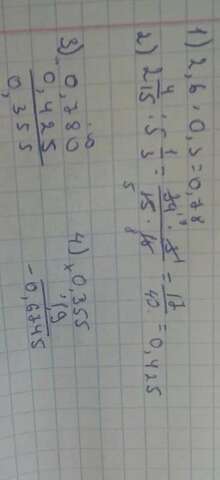 1) 2,6 · 0,3 = 0,78
2) 2 4/15 : 5 1/3 = 34 · 3 / 15 · 16 = 17/40 = 0,425
3) 0,780
0,425
0,355
0,
4) × 0,355
1,9
-0,6745